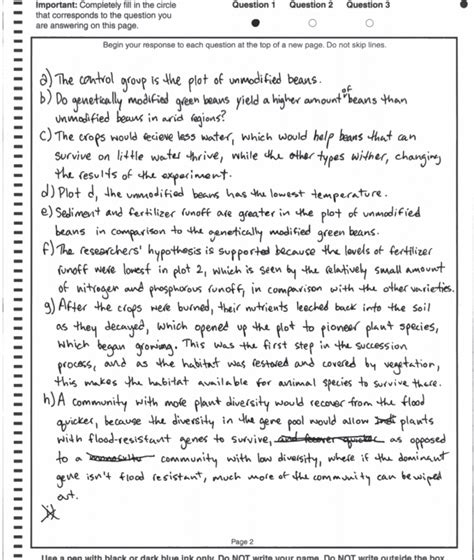 Important: Completely fill in the circle
that corresponds to the question you
are answering on this page.
Question 1 Question 2 Question 3
Begin your response to each question at the top of a new page. Do not skip lines.
a) The control group is the plot of unmodified beans.
b) Do genetically modified green beans yield a higher amount of beans than
unmodified beans in arid regions?
c) The crops would recieve less water, which would help beans that can
survive on little water thrive, while the other types wither, changing
the results of the experiment.
d) Plot d, the unmodified beans has the lowest temperature.
e) Sediment and fertilizer runoff are greater in the plot of unmodified
beans in comparison to the genetically modified green beans.
f) The researchers' hypothesis is supported because the levels of fertilizer
runoff were lowest in plot 2, which is seen by the relatively small amount
of nitrogen and phosphorous runoff, in comparison with the other varieties.
g) After the crops were burned, their nutrients leeched back into the soil
as they decayed, which opened up the plot to pioneer plant species,
which began growing. This was the first step in the succession
process, and as the habitat was restored and covered by vegetation,
this makes the habitat available for animal species to survive there.
h) A community with more plant diversity would recover from the flood
quicker, because the diversity in the gene pool would allow plants
with flood-resistant genes to survive, and recover quicker as opposed
to a community with low diversity, where if the dominant
gene isn't flood resistant, much more of the community can be wiped
out.
Page 2
Use a pen with black or dark blue ink only. Do NOT write your name. Do NOT write outside the box.